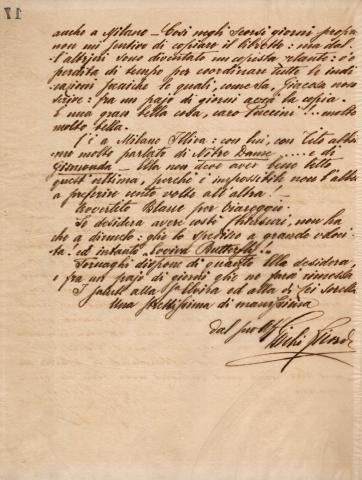 anche a Milano - Così negli scorsi giorni proprio
non mi sentivo di copiare il libretto: ma dal
l'altrieri sono diventato un copista : è
perdita di tempo per coordinare tutte le indi
cazioni sceniche le quali, come sa, Giacosa non
scrive: fra un pajo di giorni avrà la copia.
È una gran bella cosa, caro Puccini .... molto
molto bella.
C'è a Milano Illica: con lui, con Tito abbia
mo molto parlato di Notre Dame .... e di
Gismonda - Ma non deve aver bene letto
quest'ultima, perchè è impossibile non l'abbia
a preferire cento volte all'altra!
Avvertito Blanc per Viareggio.
Se desidera avere costì, non ha
che a dirmelo: gliele spedisco a grande veloci-
tà. ed intanto Lavori Butterfly!
Tornaghi dispone di quanto Ella desidera,
e fra un pajo di giorni che ne farà rimessa
I saluti alla Sa Elvira ed alla di Lei sorella
Una strettissima di mano
dal suo aff
Giulio Ricordi
17